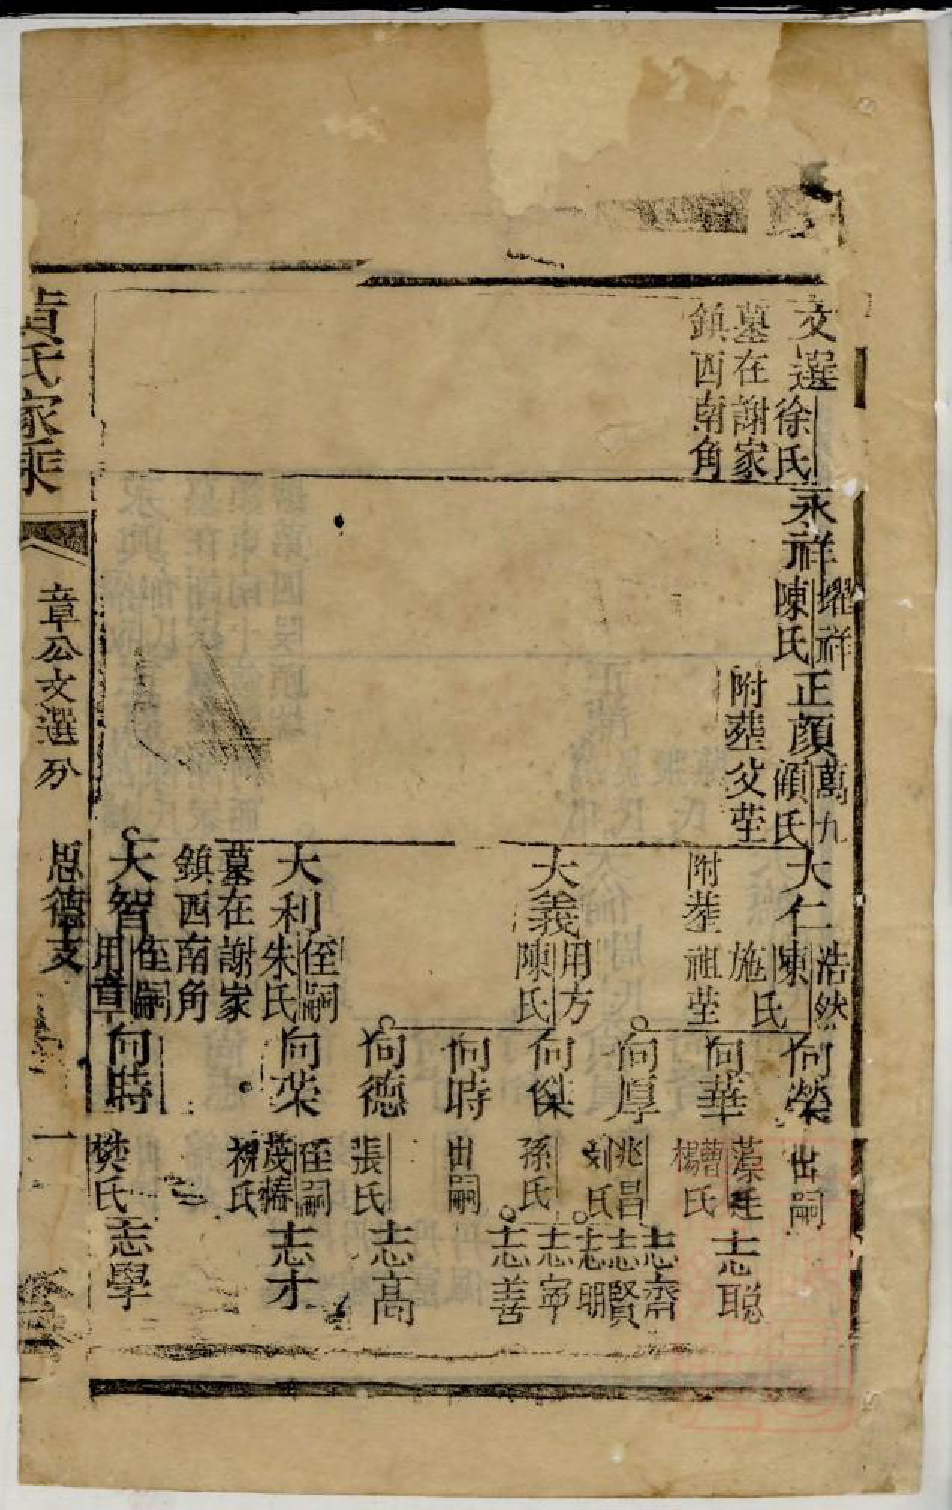 文選
徐氏
墓在謝家
鎮西南角
永祥
耀祥
陳氏
正顔
萬九
顧氏
附塟父塋
大仁
浩然
陳
施氏
附塟祖塋
大義
用方
陳氏
大利
侄嗣
朱氏
墓在謝家
鎮西南角
大智
侄嗣
用章
向榮
出嗣
向華
藻廷
曹
楊氏
向厚
兆昌
刘氏
向傑
孫氏
向時
出嗣
向德
張氏
向荣
侄嗣
茂椿
祝氏
向時
樊氏
志聪
志齊
志賢
志明
志寧
志善
志高
志才
志學
黄氏家乘
章公文選分
思德支
一